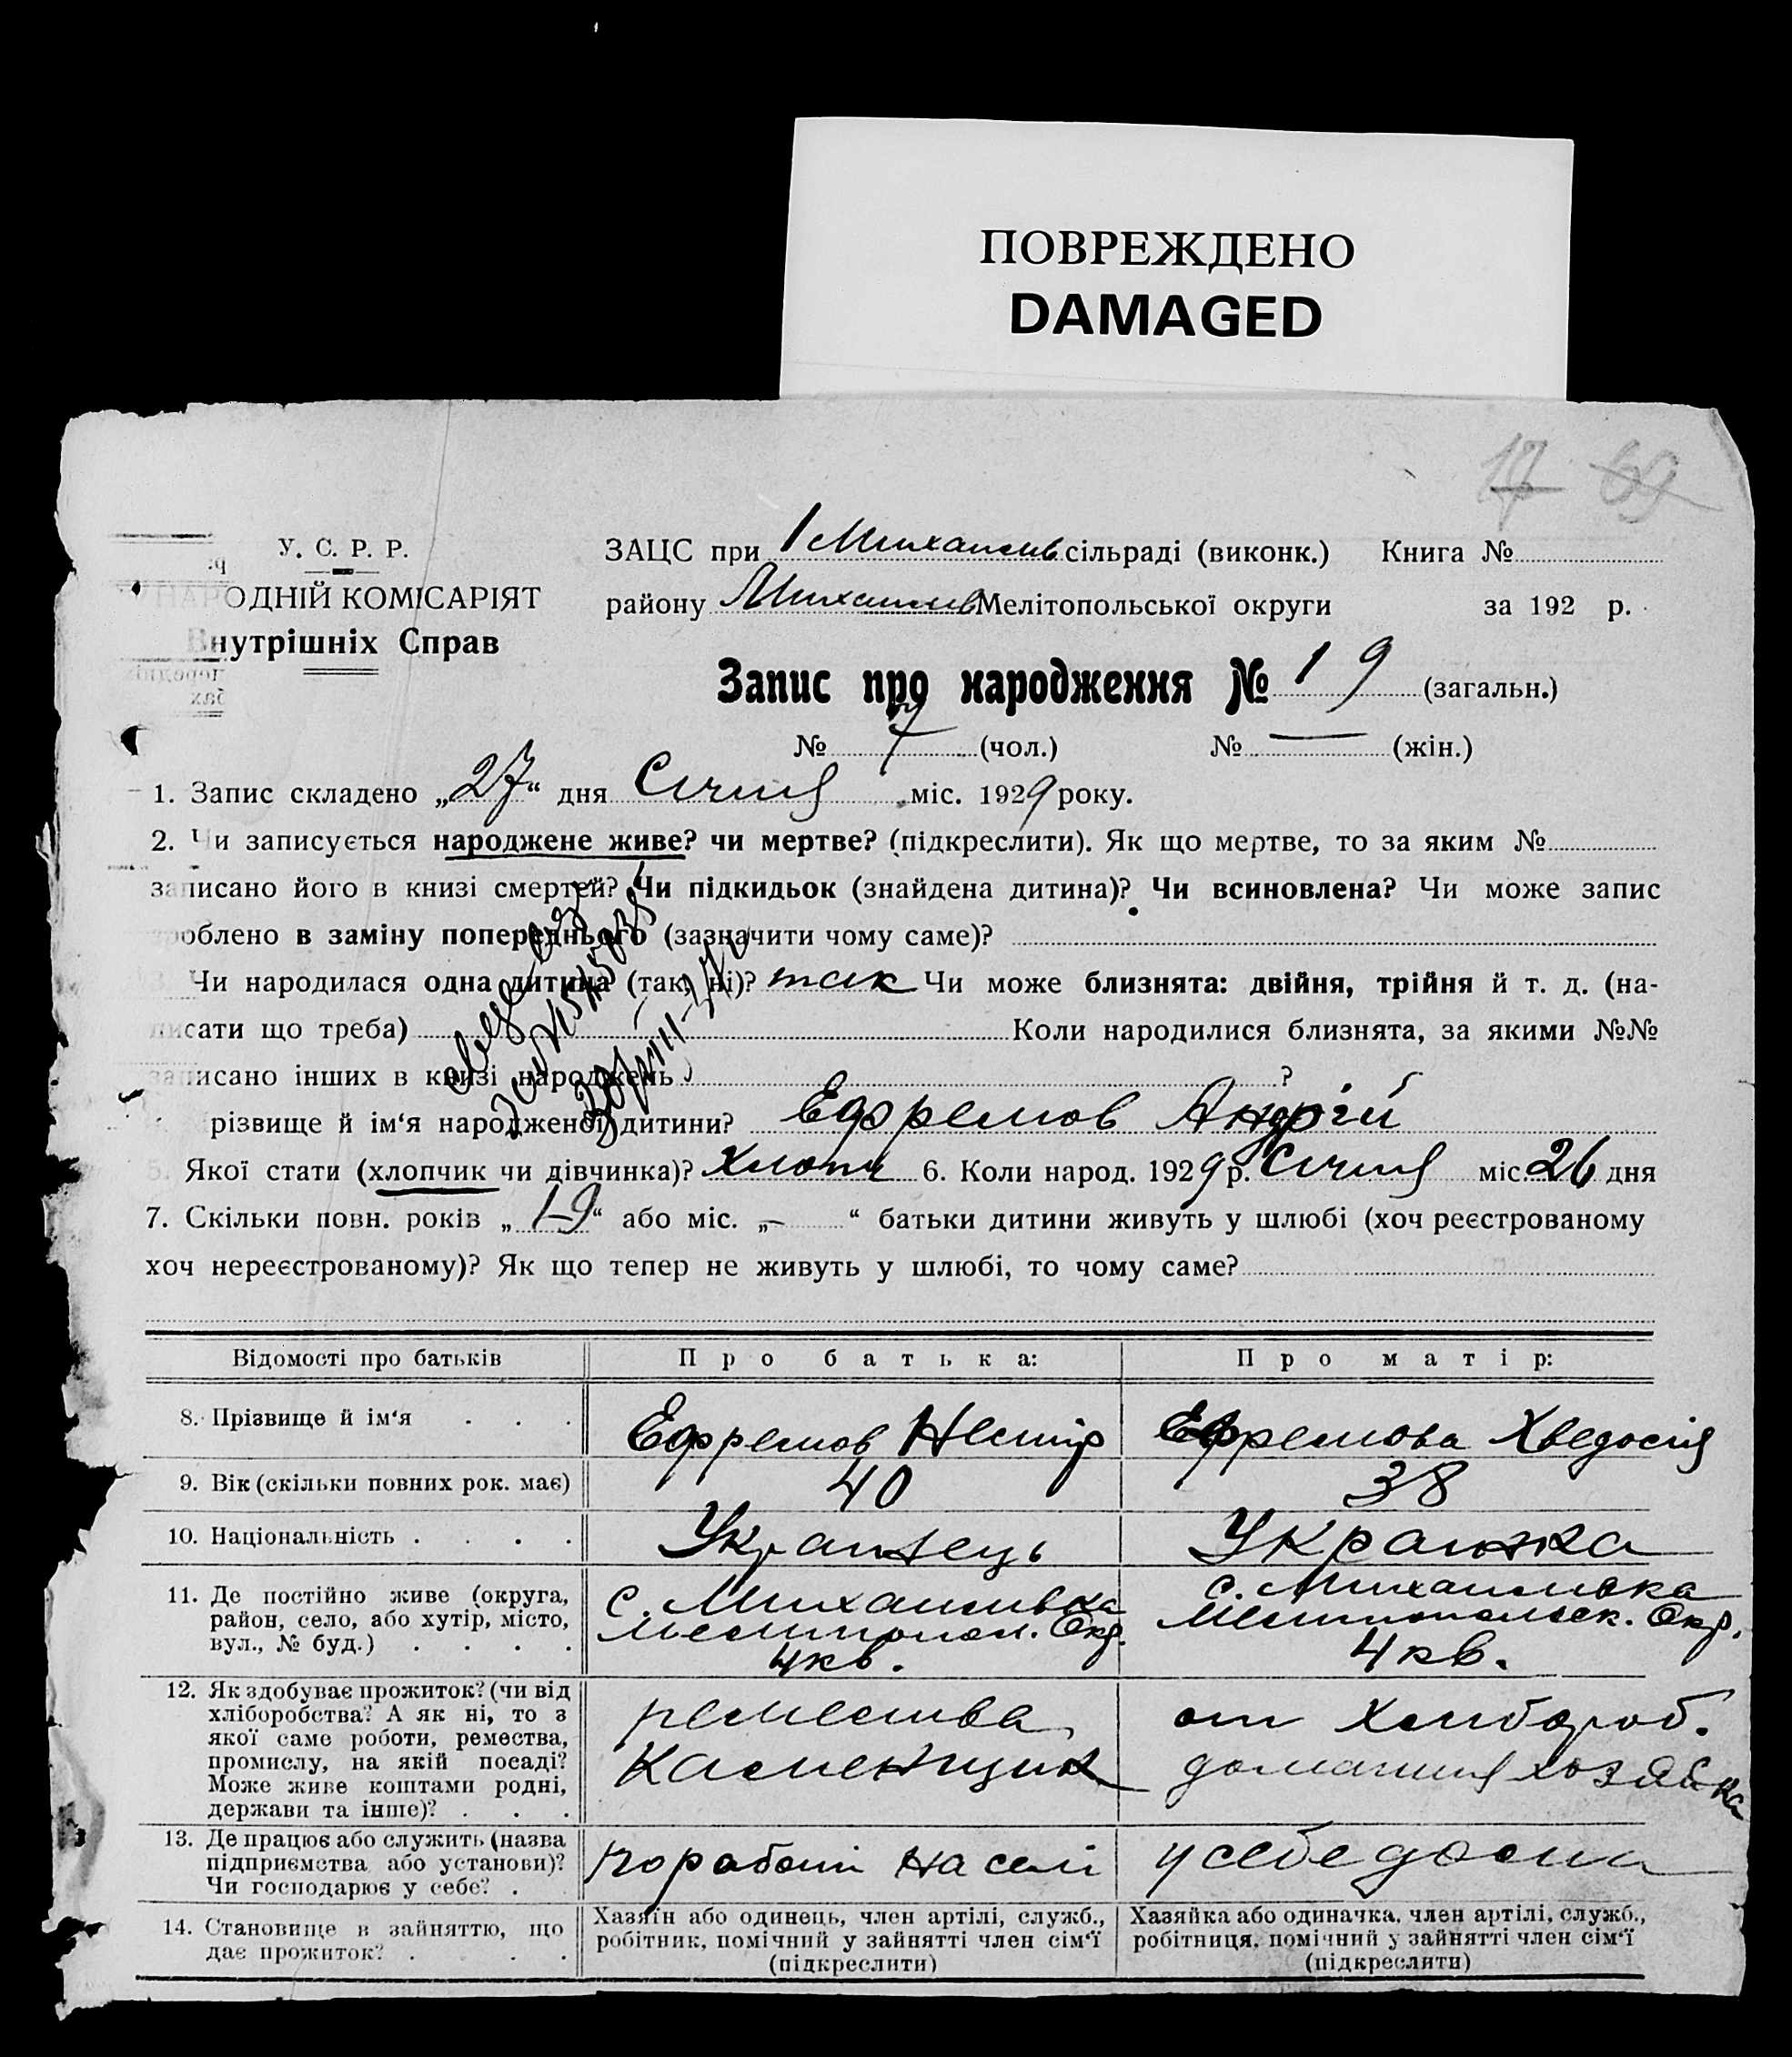 ПОВРЕЖДЕНО
DAMAGED
17 69
У. С. Р. Р.
НАРОДНІЙ КОМІСАРІЯТ
Внутрішніх Справ
ЗАЦС при 1 Михайлів сільраді (виконк.) Книга №
району Михайлів Мелітопольської округи за 192 р.
Запис про народження № 19 (загальн.)
№ 7 (чол.) № — (жін.)
1. Запис складено „27“ дня Січня міс. 1929 року.
2. Чи записується народжене живе? чи мертве? (підкреслити). Як що мертве, то за яким №
записано його в книзі смертей? Чи підкидьок (знайдена дитина)? Чи всиновлена? Чи може запис
роблено в заміну попереднього (зазначити чому саме)?
Чи народилася одна дитина (так, ні)? так Чи може близнята: двійня, трійня й т. д. (на-
писати що треба) Коли народилися близнята, за якими №№
записано інших в книзі народжень ?
різвище й ім‘я народженої дитини? Ефремов Андрій
5. Якої стати (хлопчик чи дівчинка)? Хлопч 6. Коли народ. 1929 р. Січня міс. 26 дня
7. Скільки повн. років „19“ або міс. „—“ батьки дитини живуть у шлюбі (хоч реєстрованому
хоч нереєстрованому)? Як що тепер не живуть у шлюбі, то чому саме?
Відомості про батьків Про батька: Про матір:
8. Прізвище й ім‘я . . . Ефремов Нестір Ефремова Хведосія
9. Вік (скільки повних рок. має) 40 38
10. Національність . . . . Українець Українка
11. Де постійно живе (округа,
район, село, або хутір, місто,
вул., № буд.) . . . .
с. Михайлівка
Мелітопол. Окр.
4 кв.
с. Михайлівка
Мелітопольск. Окр.
4 кв.
12. Як здобуває прожиток? (чи від
хліборобства? А як ні, то з
якої саме роботи, ремества,
промислу, на якій посаді?
Може живе коштами родні,
держави та інше)? . . .
ремества
Каменщик
от Хлибороб.
домашня хозяйка
13. Де працює або служить (назва
підприємства або установи)?
Чи господарює у себе? .
по роботі на селі
у себе дома
14. Становище в зайняттю, що
дає прожиток? . . .
Хазяїн або одинець, член артілі, служб.,
робітник, помічний у зайнятті член сім‘ї
(підкреслити)
Хазяйка або одиначка, член артілі, служб.,
робітниця, помічний у зайнятті член сім‘ї
(підкреслити)